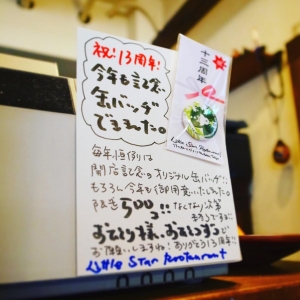 祝！13周年！
今年も記念
缶バッヂ
でまんた。
毎年恒例は
開店記念のオリジナル缶バッヂ！
もちろん今年も御用意…たしました。
限定500コ！なくなり次第
終了ですョ！
お1人1つずつど
お願いしますね！ありがとう13周年！
Little Star Restaurant
十三周年
Little Star Restaurant